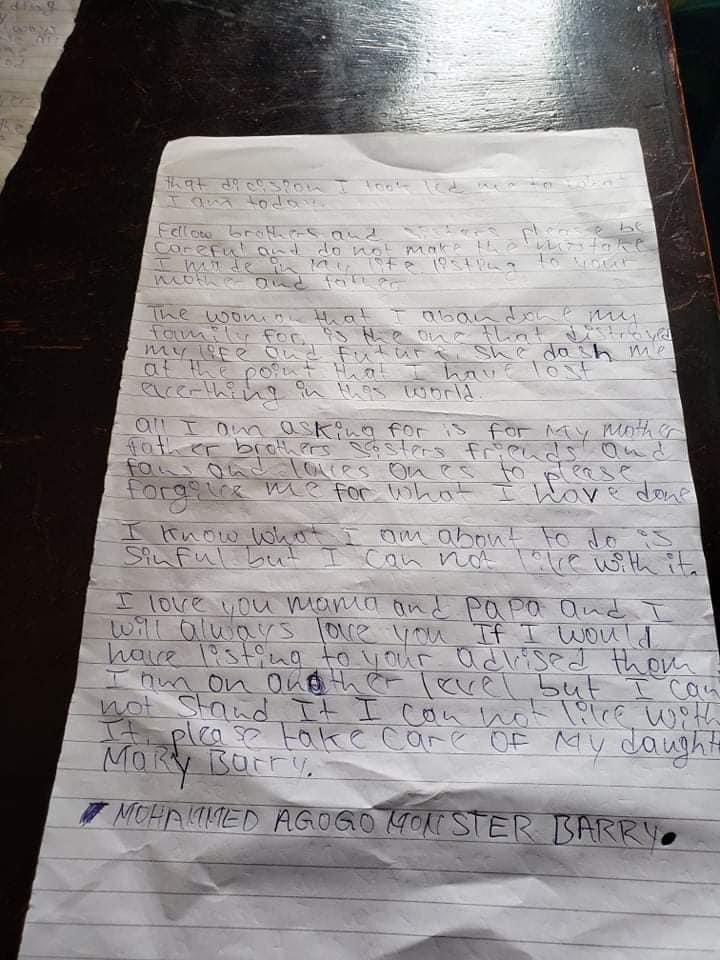 that dicision I took led me to what
I am today.
Fellow brothers and sisters please be
careful and do not make the mistake
I made in my life listing to your
mother and father
The woman that I abandone my
family for, is the one that distroyed
my life and future. She dash me
at the point that I have lost
everthing in this world.
all I am asking for is for My mother
father brothers sisters friends and
fans and loves ones to please
forgive me for what I have done
I know what I am about to do is
Sinful but I can not live with it.
I love you mama and PaPa and I
will always love you If I would
have listing to your advised them
I am on another level but I can
not Stand It I can not live with
It, please take care OF My daught
MaRy Barry.
MOHAMMED AGOGO MONSTER BARRY.